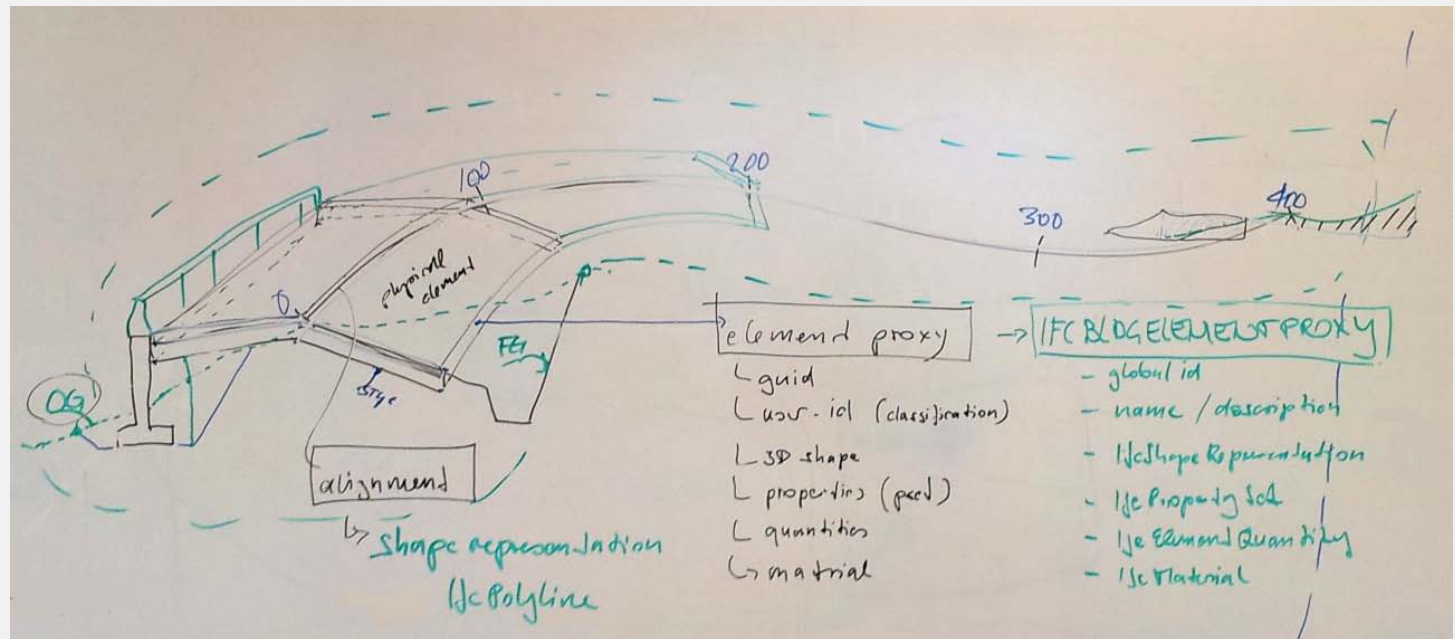 100
200
300
400
0
physical element
FG
OG
alignment
↳ shape representation
IfcPolyline
elemend proxy
└ guid
└ usv-id (classification)
└ 3D shape
└ properties (pset)
└ quantities
↳ matrial
→ IFCBLDGELEMENTPROXY
- global id
- name / description
- IfcShapeRepresentation
- IfcPropertySet
- IfcElementQuantity
- IfcMaterial